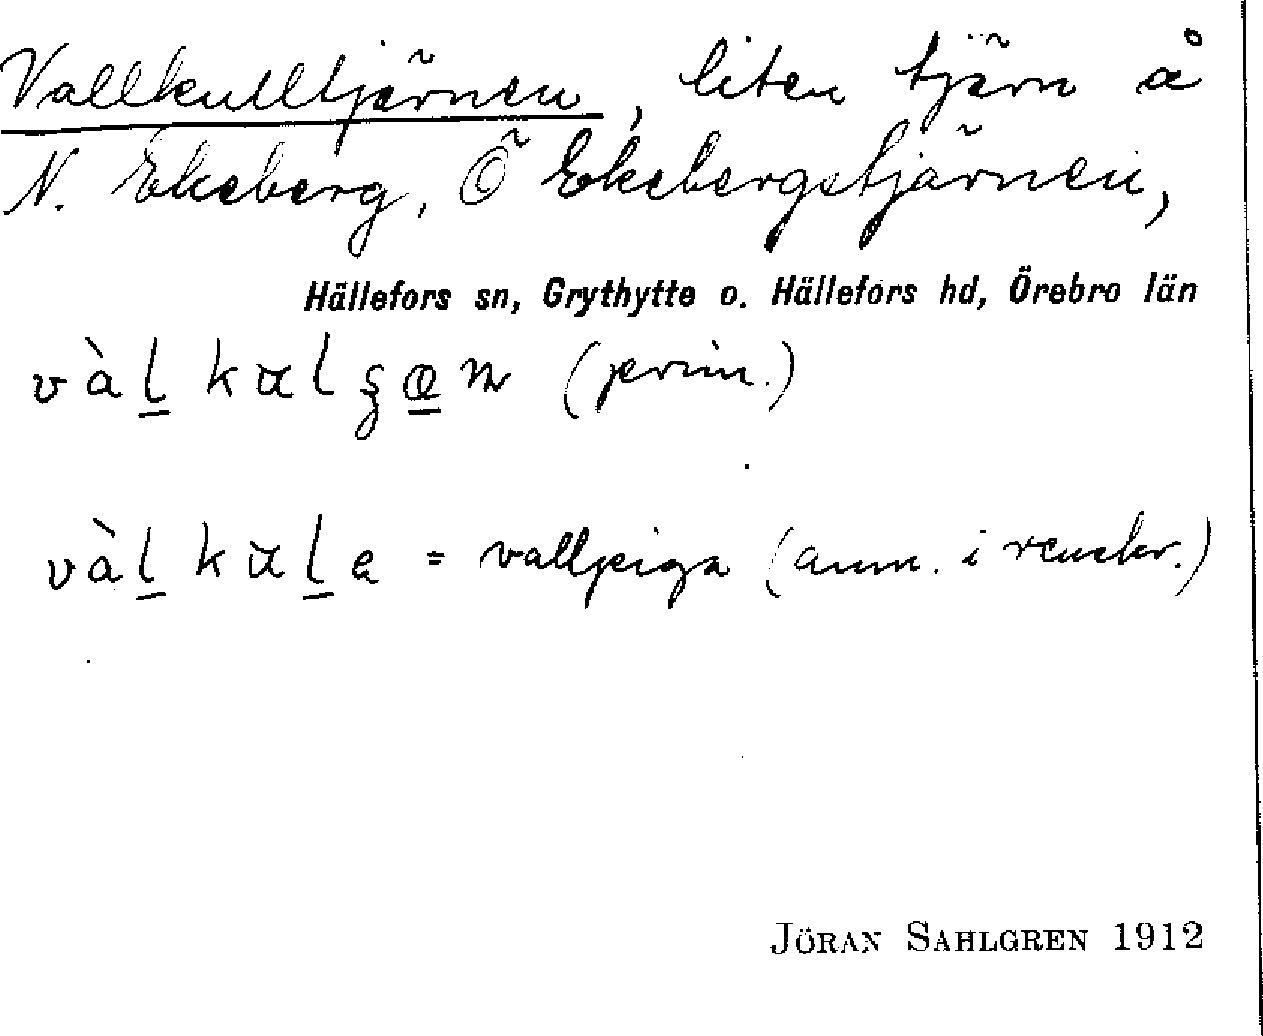 Vallkulltjärnen, liten tjärn å
N. Ekeberg, Ö Ekebergstjärnen,
Hällefors sn, Grythytte o. Hällefors hd, Örebro län
(prim.)
= vallpiga (anm. i renskr.)
JÖRAN SAHLGREN 1912